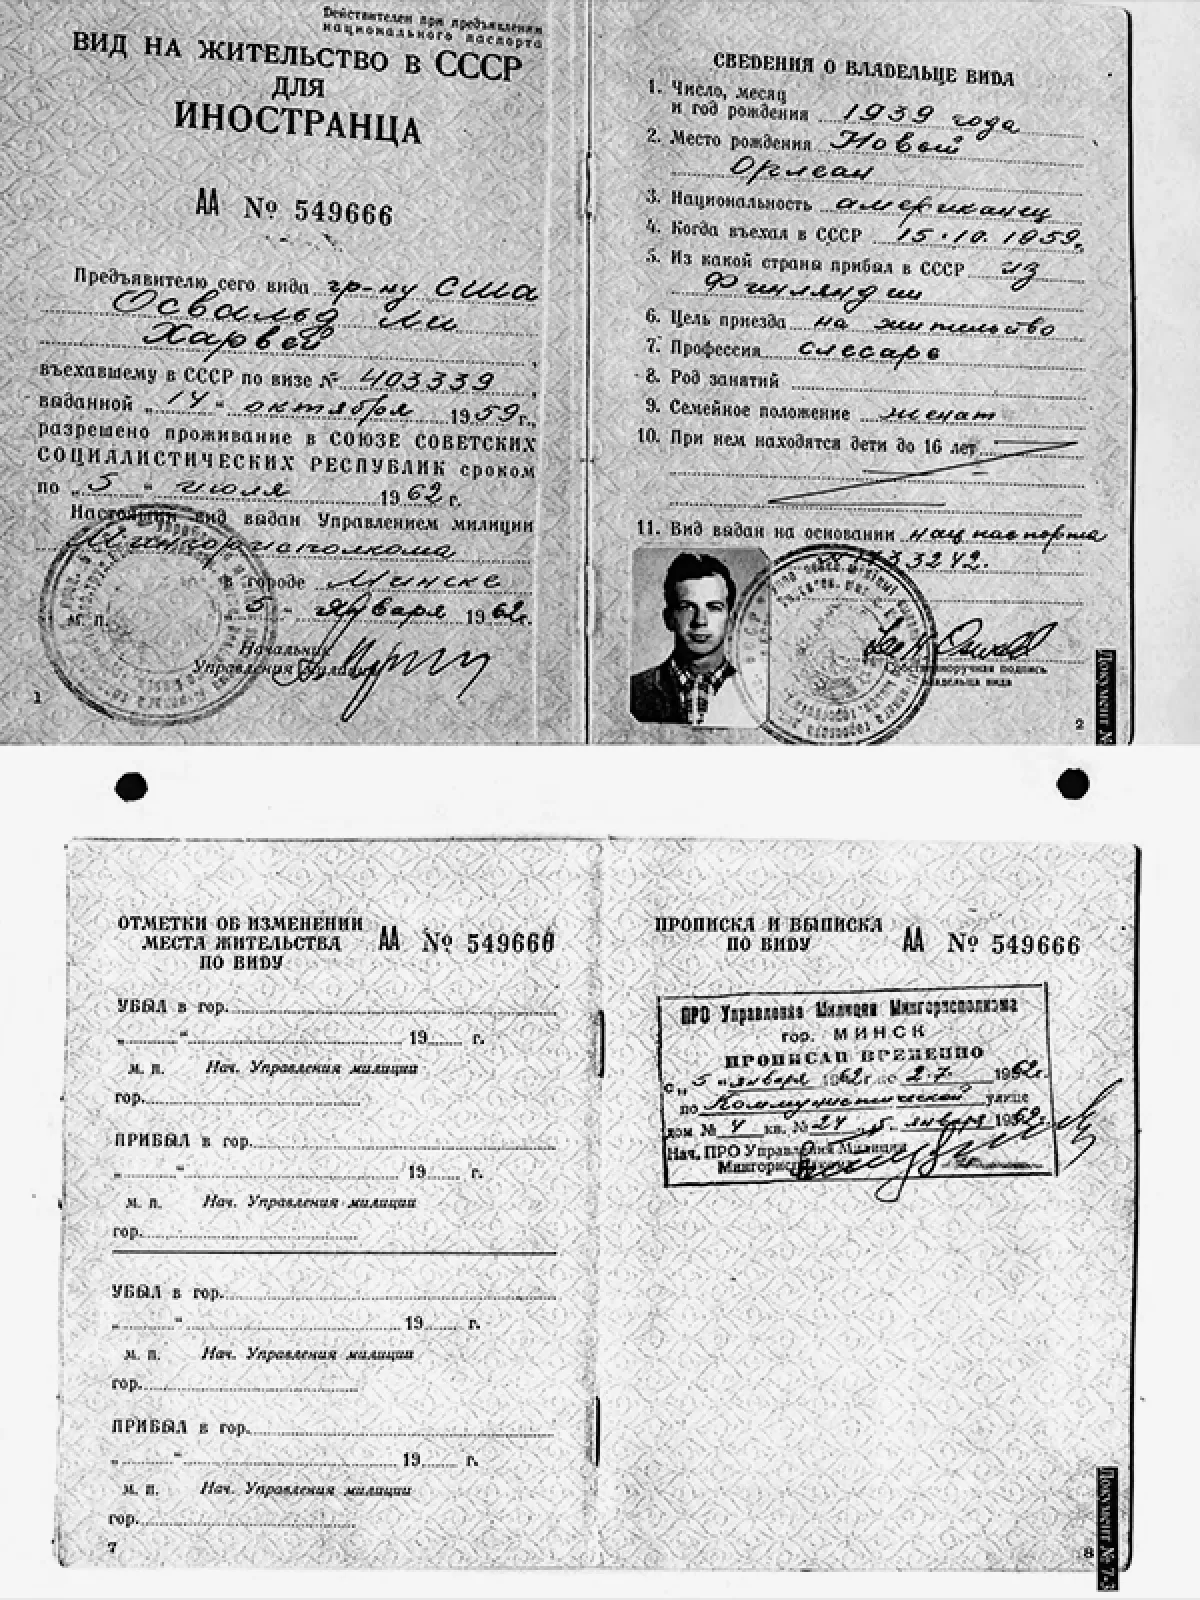 Действителен при предъявлении
национального паспорта
ВИД НА ЖИТЕЛЬСТВО В СССР
ДЛЯ
ИНОСТРАНЦА
АА № 549666
Предъявителю сего вида гр-ну США
Освальд Ли
Харвей
въехавшему в СССР по визе № 403339
выданной „14“ октября 1959 г.,
разрешено проживание в СОЮЗЕ СОВЕТСКИХ
СОЦИАЛИСТИЧЕСКИХ РЕСПУБЛИК сроком
по „5“ июля 1962 г.
Настоящий вид выдан Управлением милиции
Мингорисполкома
в городе Минске
5 января 1962 г.
м. п.
Начальник
Управления милиции
1
СВЕДЕНИЯ О ВЛАДЕЛЬЦЕ ВИДА
1. Число, месяц
и год рождения 1939 года
2. Место рождения Новый
Орлеан
3. Национальность американец
4. Когда въехал в СССР 15.10.1959.
5. Из какой страны прибыл в СССР из
Финляндии
6. Цель приезда на жительство
7. Профессия слесарь
8. Род занятий
9. Семейное положение женат
10. При нем находятся дети до 16 лет
11. Вид выдан на основании нац паспорта
33242.
Собственноручная подпись
владельца вида
2
Документ №
ОТМЕТКИ ОБ ИЗМЕНЕНИИ
МЕСТА ЖИТЕЛЬСТВА
ПО ВИДУ
АА № 549666
УБЫЛ в гор.
„ “ 19 г.
м. п. Нач. Управления милиции
гор.
ПРИБЫЛ в гор.
„ “ 19 г.
м. п. Нач. Управления милиции
гор.
УБЫЛ в гор.
„ “ 19 г.
м. п. Нач. Управления милиции
гор.
ПРИБЫЛ в гор.
„ “ 19 г.
м. п. Нач. Управления милиции
гор.
7
ПРОПИСКА И ВЫПИСКА
ПО ВИДУ
АА № 549666
ПРО Управления Милиции Мингорисполкома
гор. МИНСК
ПРОПИСАН ВРЕМЕННО
с „5“ января 1962 г. по 2.7. 1962 г.
по Коммунистической улице
дом № 4 кв. № 24 „5. января 1962 г.
Нач. ПРО Управления Милиции
Мингорисполкома
8
Документ № 7-3